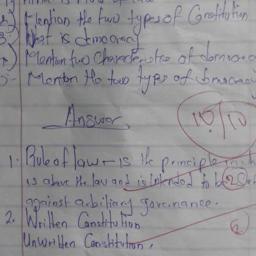 Mention the two types of Constitution
What is democracy
Mention two Characteristics of democrac
Mention the two types of democracy
Answer
10/10
1. Rule of law - is the principle
is above the law and is intended to be
against arbiliary governance.
2. Written Constitution
Unwritten Constitution.